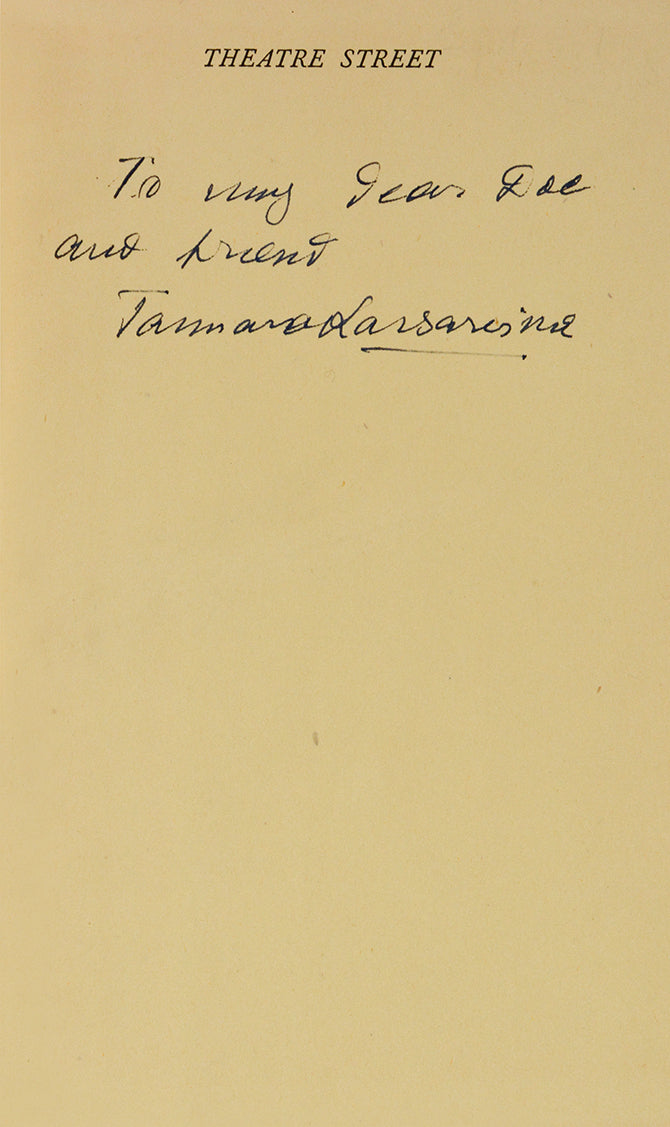 THEATRE STREET
To my dear Doc
and friend
Tamara Karsavina